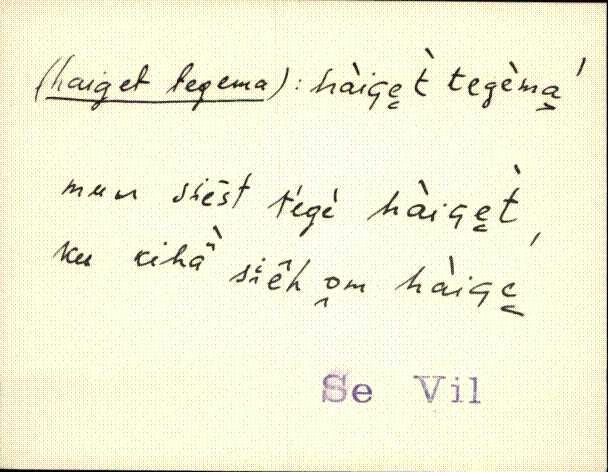 (haiget tegema): hàige̮t̀ tegèma̮'
mun siēst t́egè hàige̮t̀,
ku kihä̀ si̯êh o̭m hàige̮
Se Vil